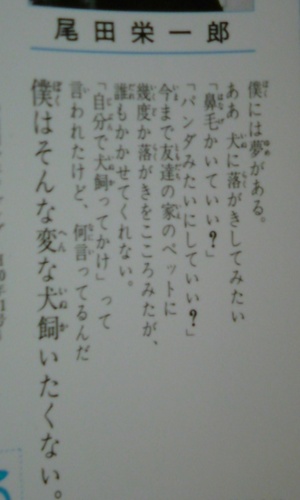 尾田栄一郎
僕には夢がある。
ああ 犬に落がきしてみたい
「鼻毛かいていい?」
「パンダみたいにしていい?」
今まで友達の家のペットに
幾度か落がきをこころみたが、
誰もかかせてくれない。
「自分で犬飼ってかけ」って
言われたけど、何言ってるんだ
僕はそんな変な犬飼いたくない。